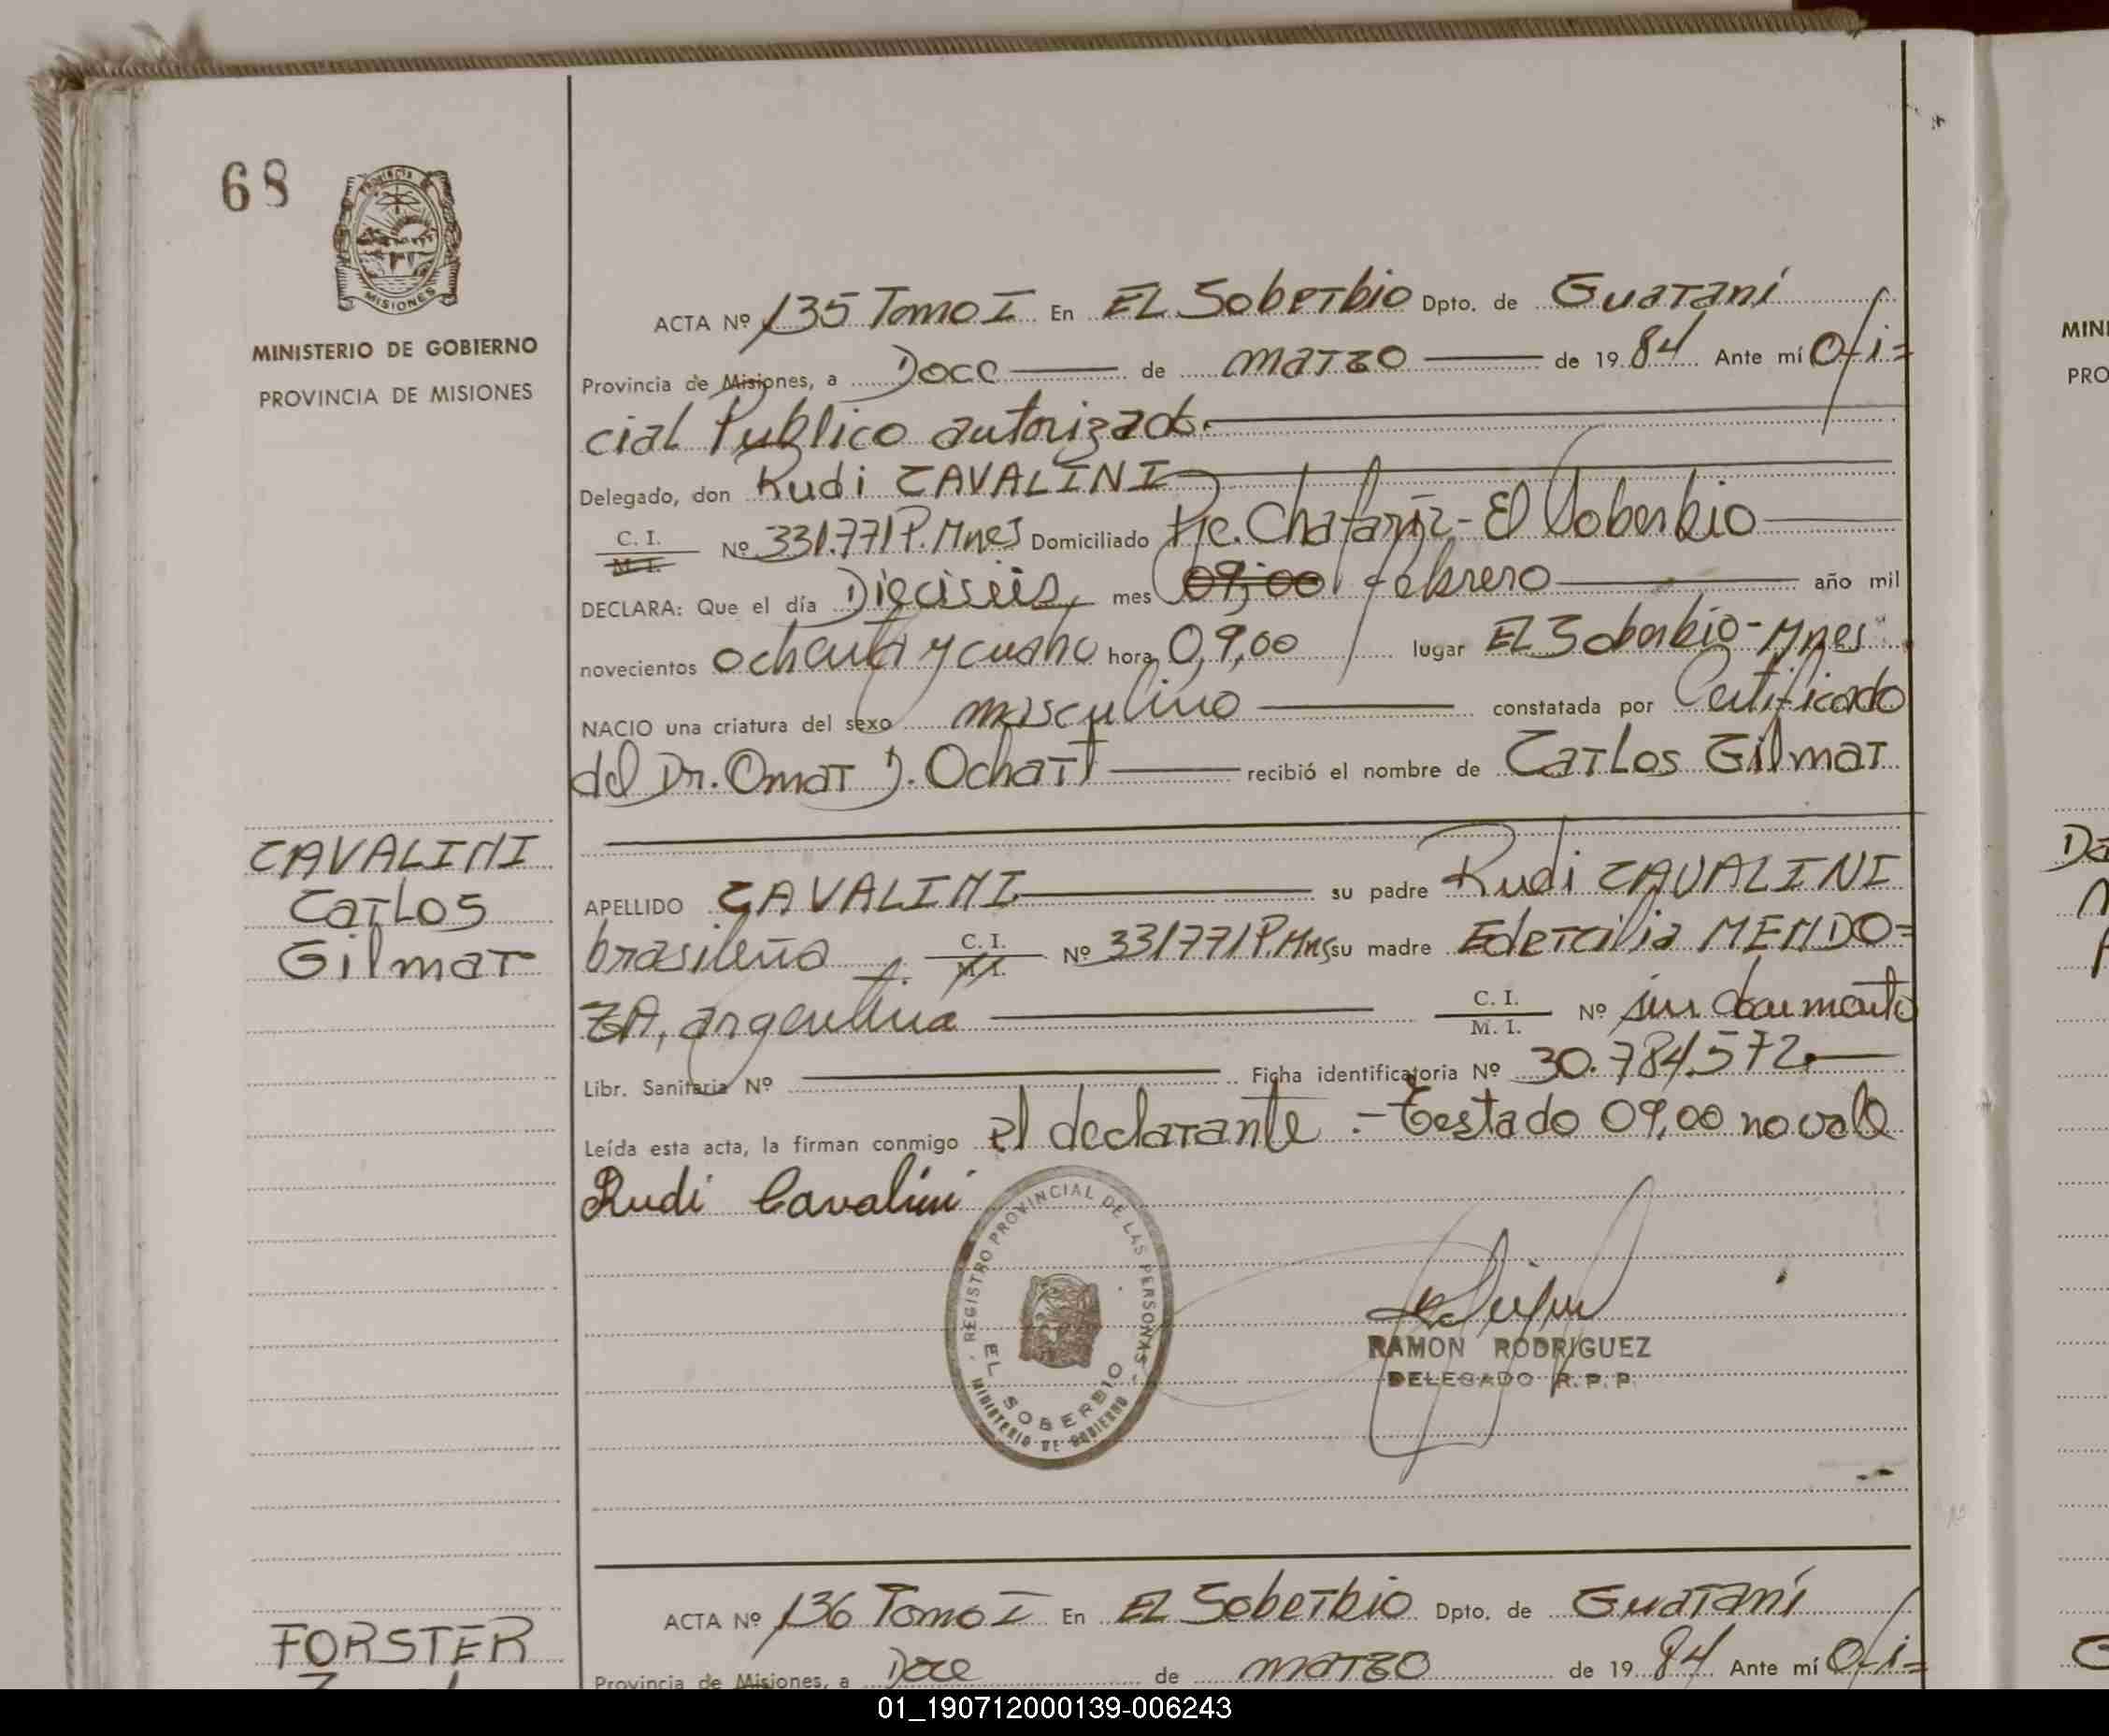 68
PROVINCIA DE
MISIONES
MINISTERIO DE GOBIERNO
PROVINCIA DE MISIONES
ACTA Nº 135 Tomo I En EL Soberbio Dpto. de Guaraní
Provincia de Misiones, a Doce de marzo de 1984 Ante mí Ofi=
cial Publico autorizado.
Delegado, don Rudi CAVALINI
C. I.
M. I. Nº 331.771 P. Mnes Domiciliado Pje. Chafariz - El Soberbio
DECLARA: Que el día Dieciseis mes 09,00 febrero año mil
novecientos ochenta y cuatro hora 09,00 lugar EL Soberbio - Mnes
NACIO una criatura del sexo masculino constatada por Certificado
del Dr. Omar J. Ochart recibió el nombre de Carlos Gilmar
CAVALINI
Carlos
Gilmar
APELLIDO CAVALINI su padre Rudi CAVALINI
brasileña C. I.
M. I. Nº 331771 P. Mnes su madre Edercilia MENDO=
ZA, argentina C. I.
M. I. Nº sin documento
Libr. Sanitaria Nº Ficha identificatoria Nº 30.784.572
Leída esta acta, la firman conmigo el declarante.- Testado 09,00 no vale
Rudi Cavalini
REGISTRO PROVINCIAL DE LAS PERSONAS
EL SOBERBIO
MINISTERIO DE GOBIERNO
RAMON RODRIGUEZ
DELEGADO R. P. P.
ACTA Nº 136 Tomo I En EL Soberbio Dpto. de Guaraní
FORSTER
Provincia de Misiones, a Doce de marzo de 1984 Ante mí Ofi=
MINI
PRO
01_190712000139-006243